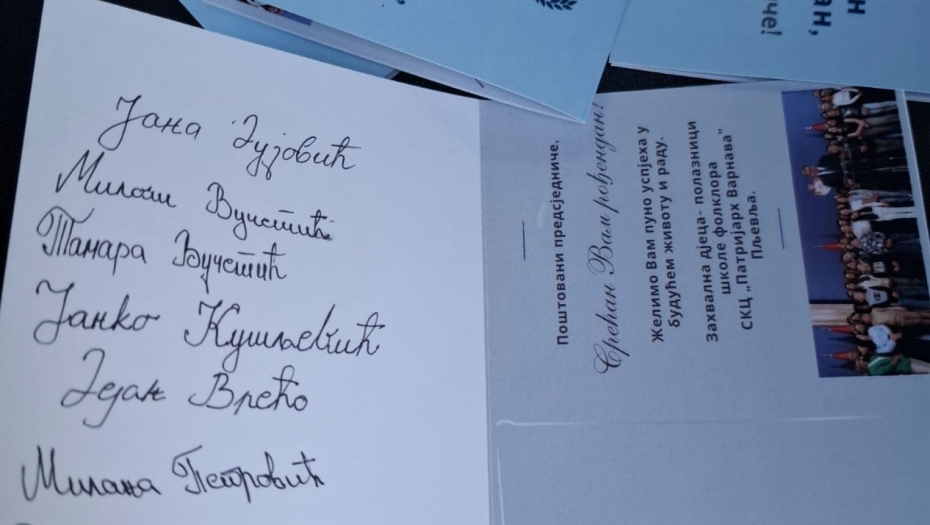 Јана Зујовић
Милош Вучетић
Тамара Вучетић
Јанко Кушљевић
Дејан Врећо
Милања Петровић
Поштовани предсједниче,
Срећан Вам рођендан!
Желимо Вам пуно успјеха у
будућем животу и раду.
Захвална дјеца- полазници
школе фолклора
СКЦ „Патријарх Варнава”
Пљевља.